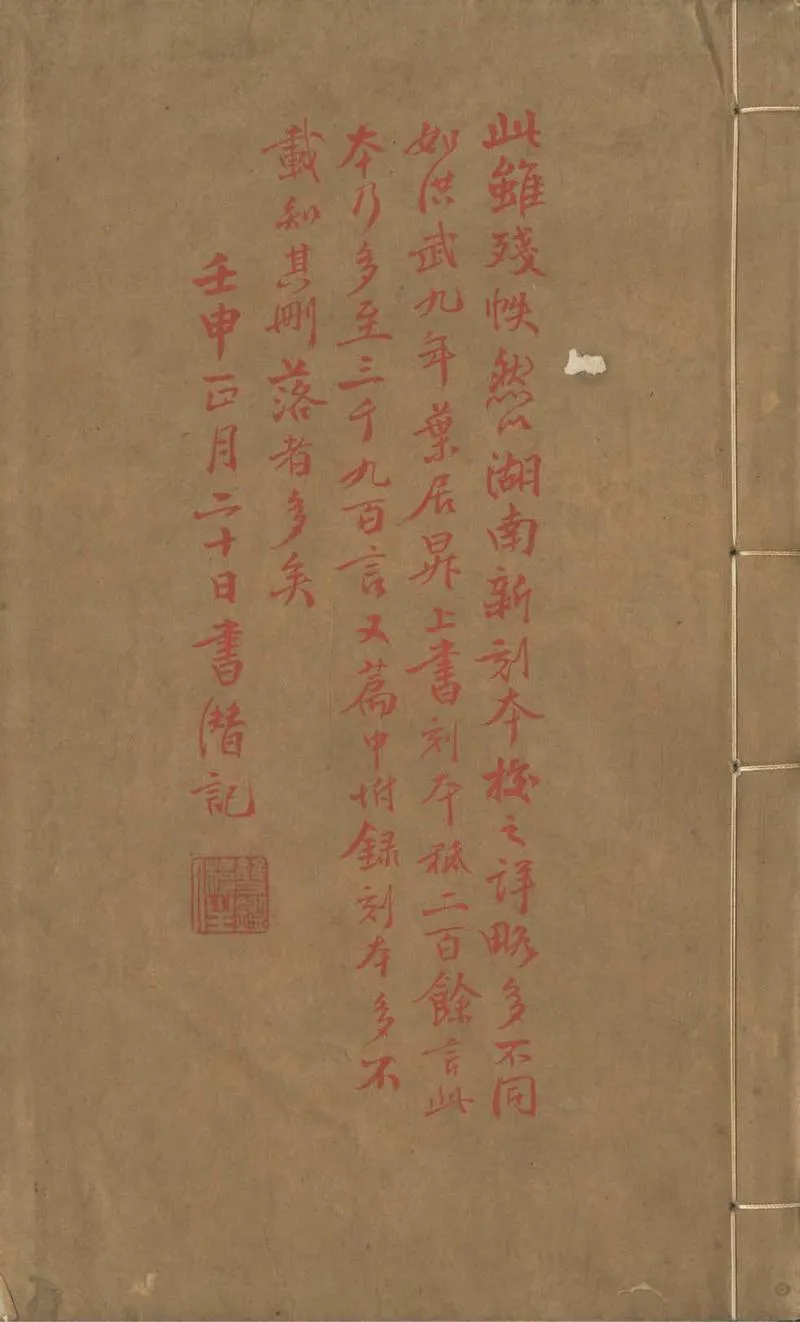 此雖殘帙然以湖南新刻本校之詳略多不同
如洪武九年葉居昇上書刻本秪二百餘言此
本乃多至三千九百言又篇中坿錄刻本多不
載知其刪落者多矣
壬申正月二十日書潛記